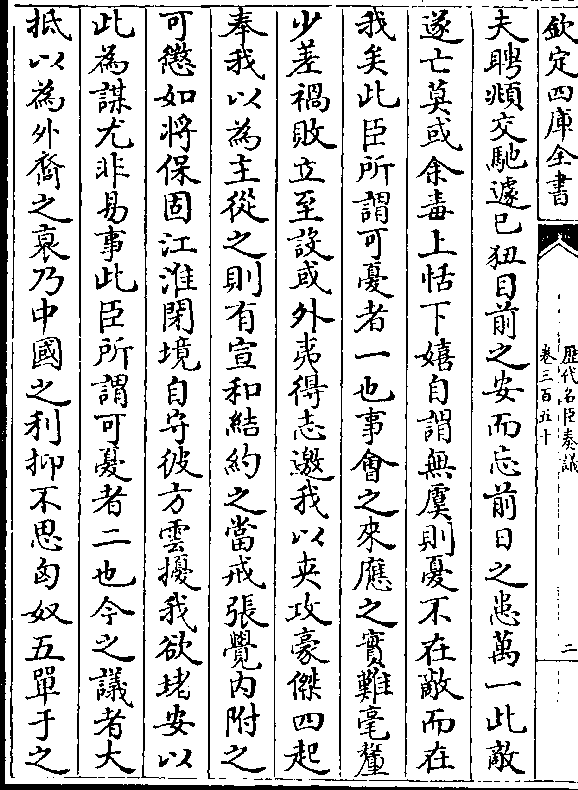 欽定四庫全書
歷代名臣奏議
卷三百五十
二
夫聘頫交馳遽已狃目前之安而忘前日之患萬一此敵
遂亡莫或余毒上恬下嬉自謂無虞則憂不在敵而在
我矣此臣所謂可憂者一也事會之來應之實難毫釐
少差禍敗立至設或外夷得志邀我以夾攻豪傑四起
奉我以為主從之則有宣和結約之當戒張覺内附之
可懲如將保固江淮閉境自守彼方雲擾我欲堵安以
此為謀尤非易事此臣所謂可憂者二也今之議者大
抵以為外裔之衰乃中國之利抑不思匈奴五單于之